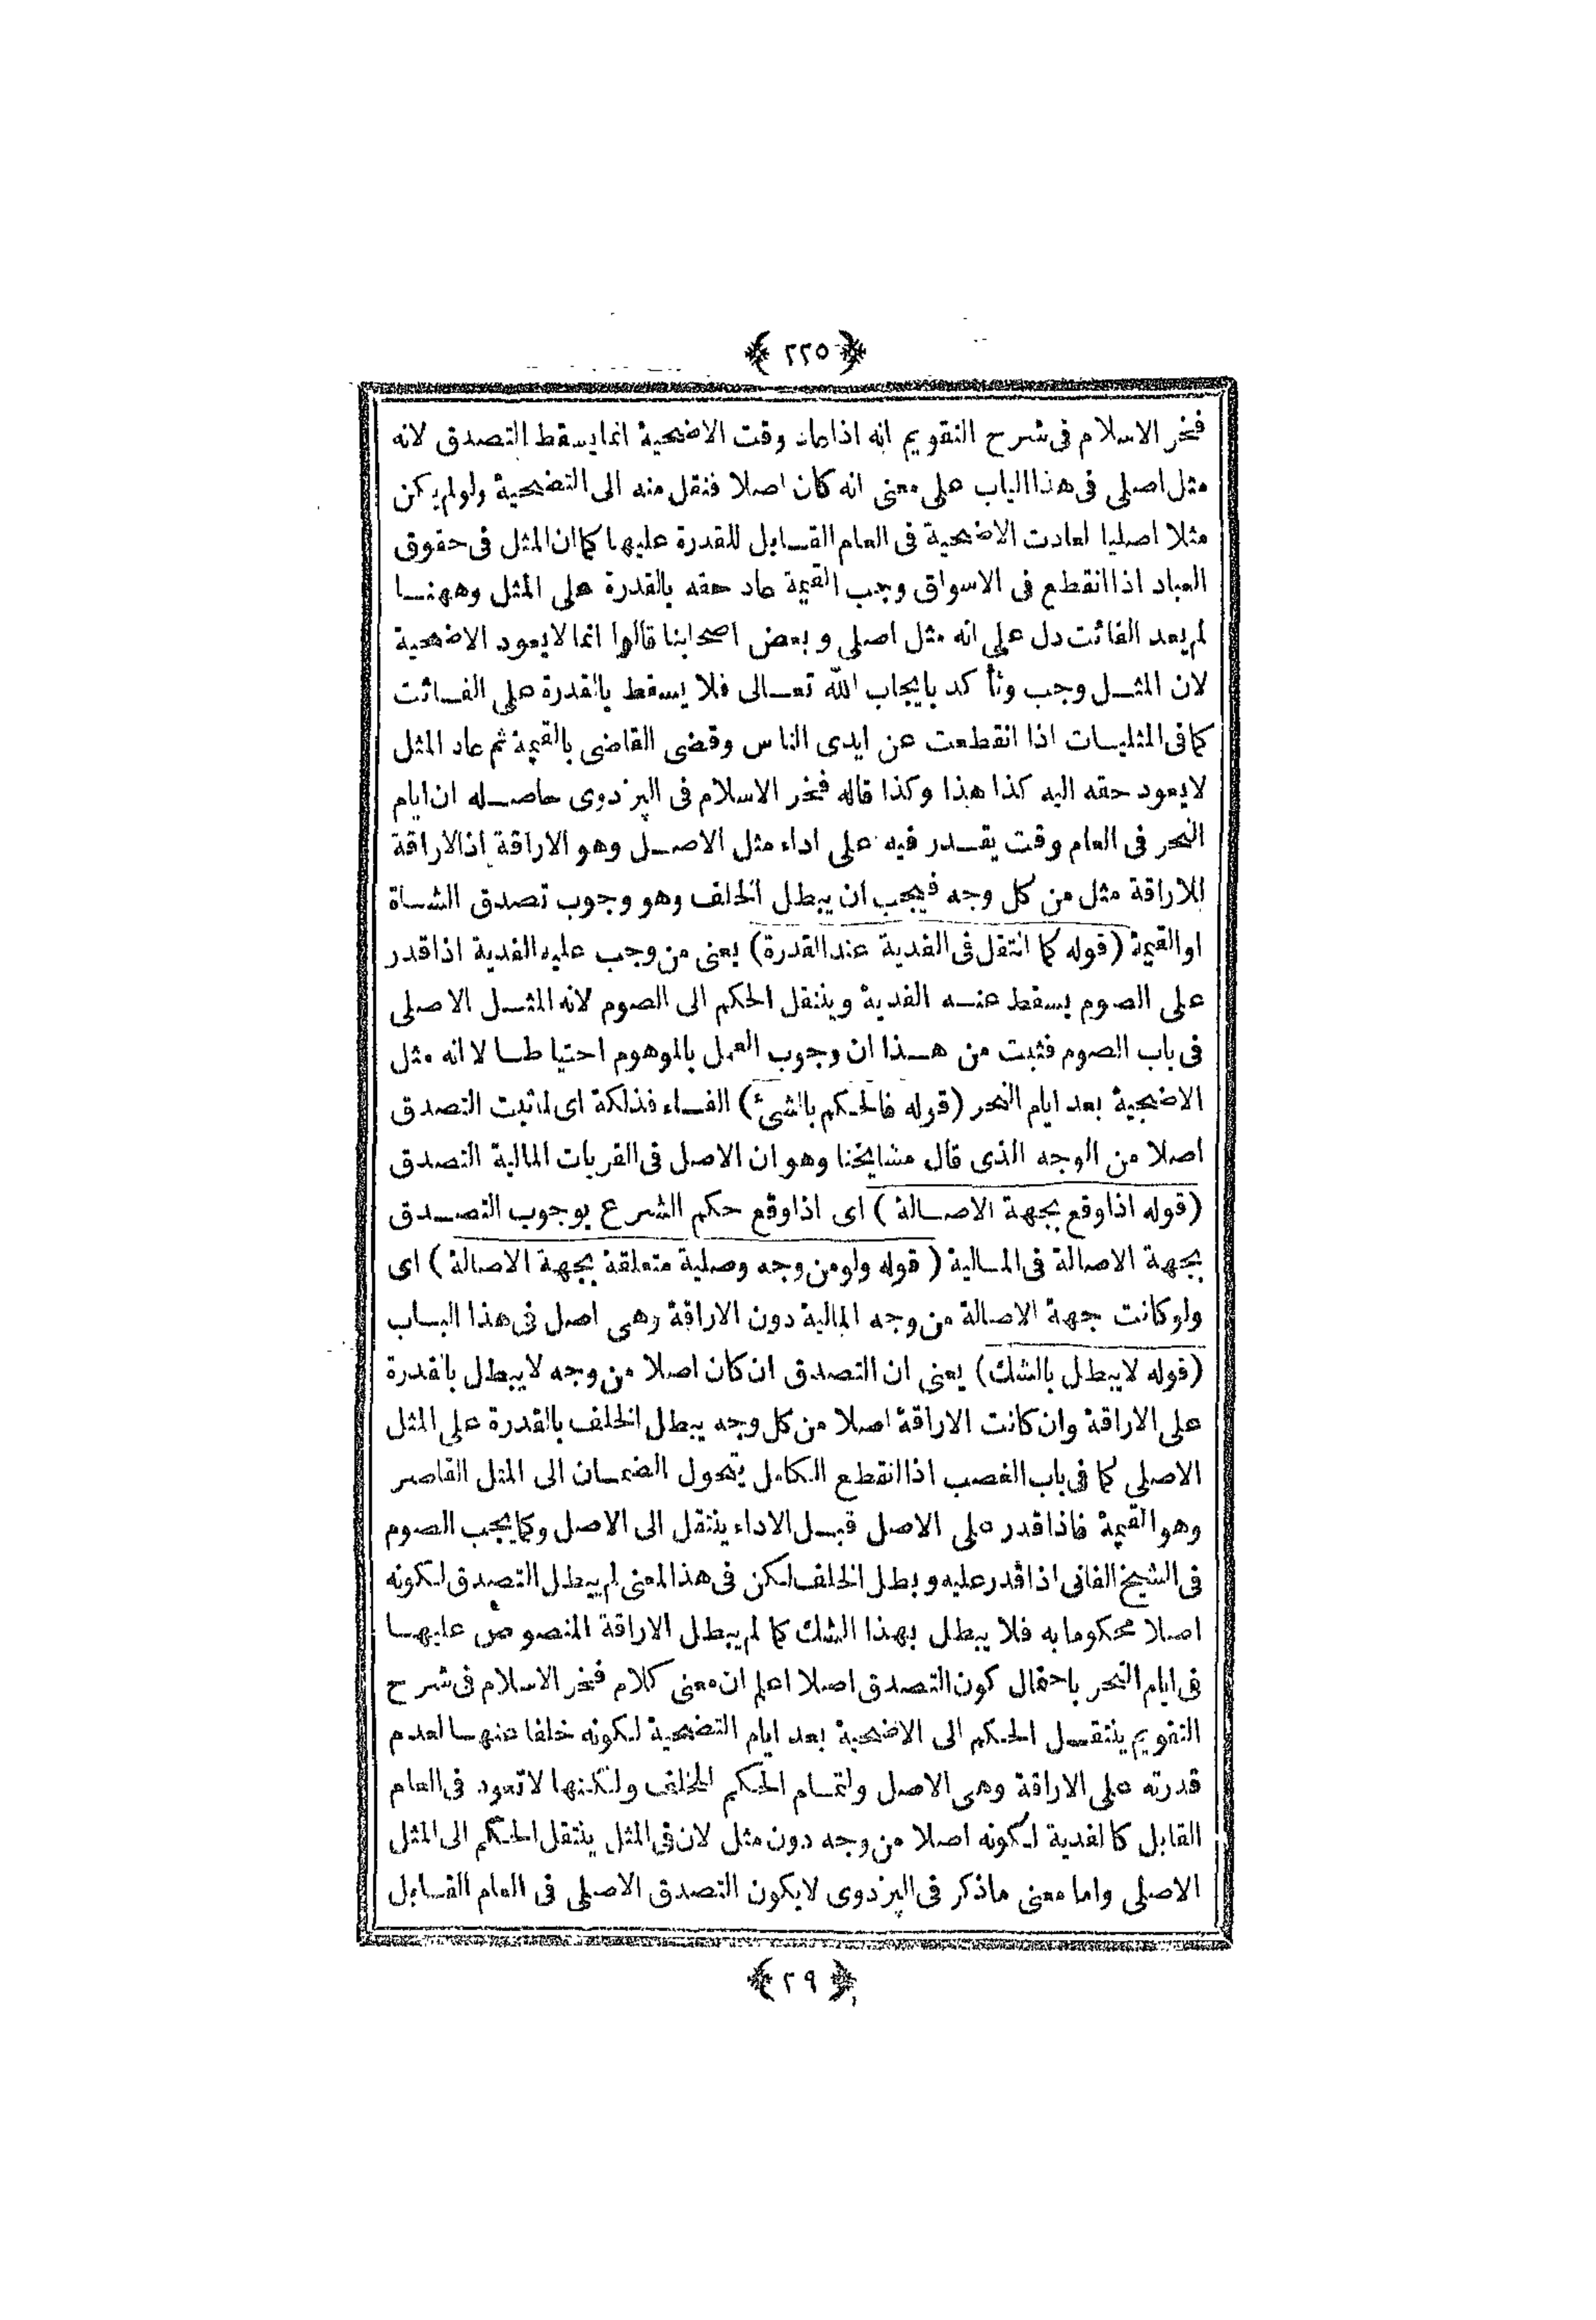 ﴿ ٢٢٥ ﴾
فخر الاسلام فى شرح التقويم انه اذا عاد وقت الاضحية انما يسقط التصدق لانه
مثل اصلى فى هذا الباب على معنى انه كان اصلا فنقل منه الى التضحية ولو لم يكن
مثلا اصليا لعادت الاضحية فى العام القابل للقدرة عليها كما ان المثل فى حقوق
العباد اذا انقطع فى الاسواق وجب القيمة عاد حقه بالقدرة على المثل وههنا
لم يعد الفائت دل على انه مثل اصلى وبعض اصحابنا قالوا انما لا يعود الاضحية
لان المثل وجب وتأكد بايجاب الله تعالى فلا يسقط بالقدرة على الفائت
كما فى المثليات اذا انقطعت عن ايدى الناس وقضى القاضى بالقيمة ثم عاد المثل
لا يعود حقه اليه كذا هذا وكذا قاله فخر الاسلام فى البزدوى حاصله ان ايام
النحر فى العام وقت يقدر فيه على اداء مثل الاصل وهو الاراقة اذ الاراقة
للاراقة مثل من كل وجه فيجب ان يبطل الخلف وهو وجوب تصدق الشاة
او القيمة (قوله كما انتقل فى الفدية عند القدرة) يعنى من وجب عليه الفدية اذا قدر
على الصوم يسقط عنه الفدية وينتقل الحكم الى الصوم لانه المثل الاصلى
فى باب الصوم فثبت من هذا ان وجوب العمل بالموهوم احتياطا لا انه مثل
الاضحية بعد ايام النحر (قوله فالحكم بالشئ) الفاء فذلكة اى لما ثبت التصدق
اصلا من الوجه الذى قال مشايخنا وهو ان الاصل فى القربات المالية التصدق
(قوله اذا وقع بجهة الاصالة) اى اذا وقع حكم الشرع بوجوب التصدق
بجهة الاصالة فى المالية (قوله ولو من وجه وصلية متعلقة بجهة الاصالة) اى
ولو كانت جهة الاصالة من وجه المالية دون الاراقة وهى اصل فى هذا الباب
(قوله لا يبطل بالشك) يعنى ان التصدق ان كان اصلا من وجه لا يبطل بالقدرة
على الاراقة وان كانت الاراقة اصلا من كل وجه يبطل الخلف بالقدرة على المثل
الاصلى كما فى باب الغصب اذا انقطع الكامل يتحول الضمان الى المثل القاصر
وهو القيمة فاذا قدر على الاصل قبل الاداء ينتقل الى الاصل وكما يجب الصوم
فى الشيخ الفانى اذا قدر عليه وبطل الخلف لكن فى هذا المعنى لم يبطل التصدق لكونه
اصلا محكوما به فلا يبطل بهذا الشك كما لم يبطل الاراقة المنصوص عليها
فى ايام النحر باحتمال كون التصدق اصلا اعلم ان معنى كلام فخر الاسلام فى شرح
التقويم ينتقل الحكم الى الاضحية بعد ايام التضحية لكونه خلفا عنها لعدم
قدرته على الاراقة وهى الاصل ولتمام الحكم للخلف ولكنها لا تعود فى العام
القابل كالفدية لكونه اصلا من وجه دون مثل لان فى المثل ينتقل الحكم الى المثل
الاصلى واما معنى ما ذكر فى البزدوى لا يكون التصدق الاصلى فى العام القابل
﴿ ٢٩ ﴾